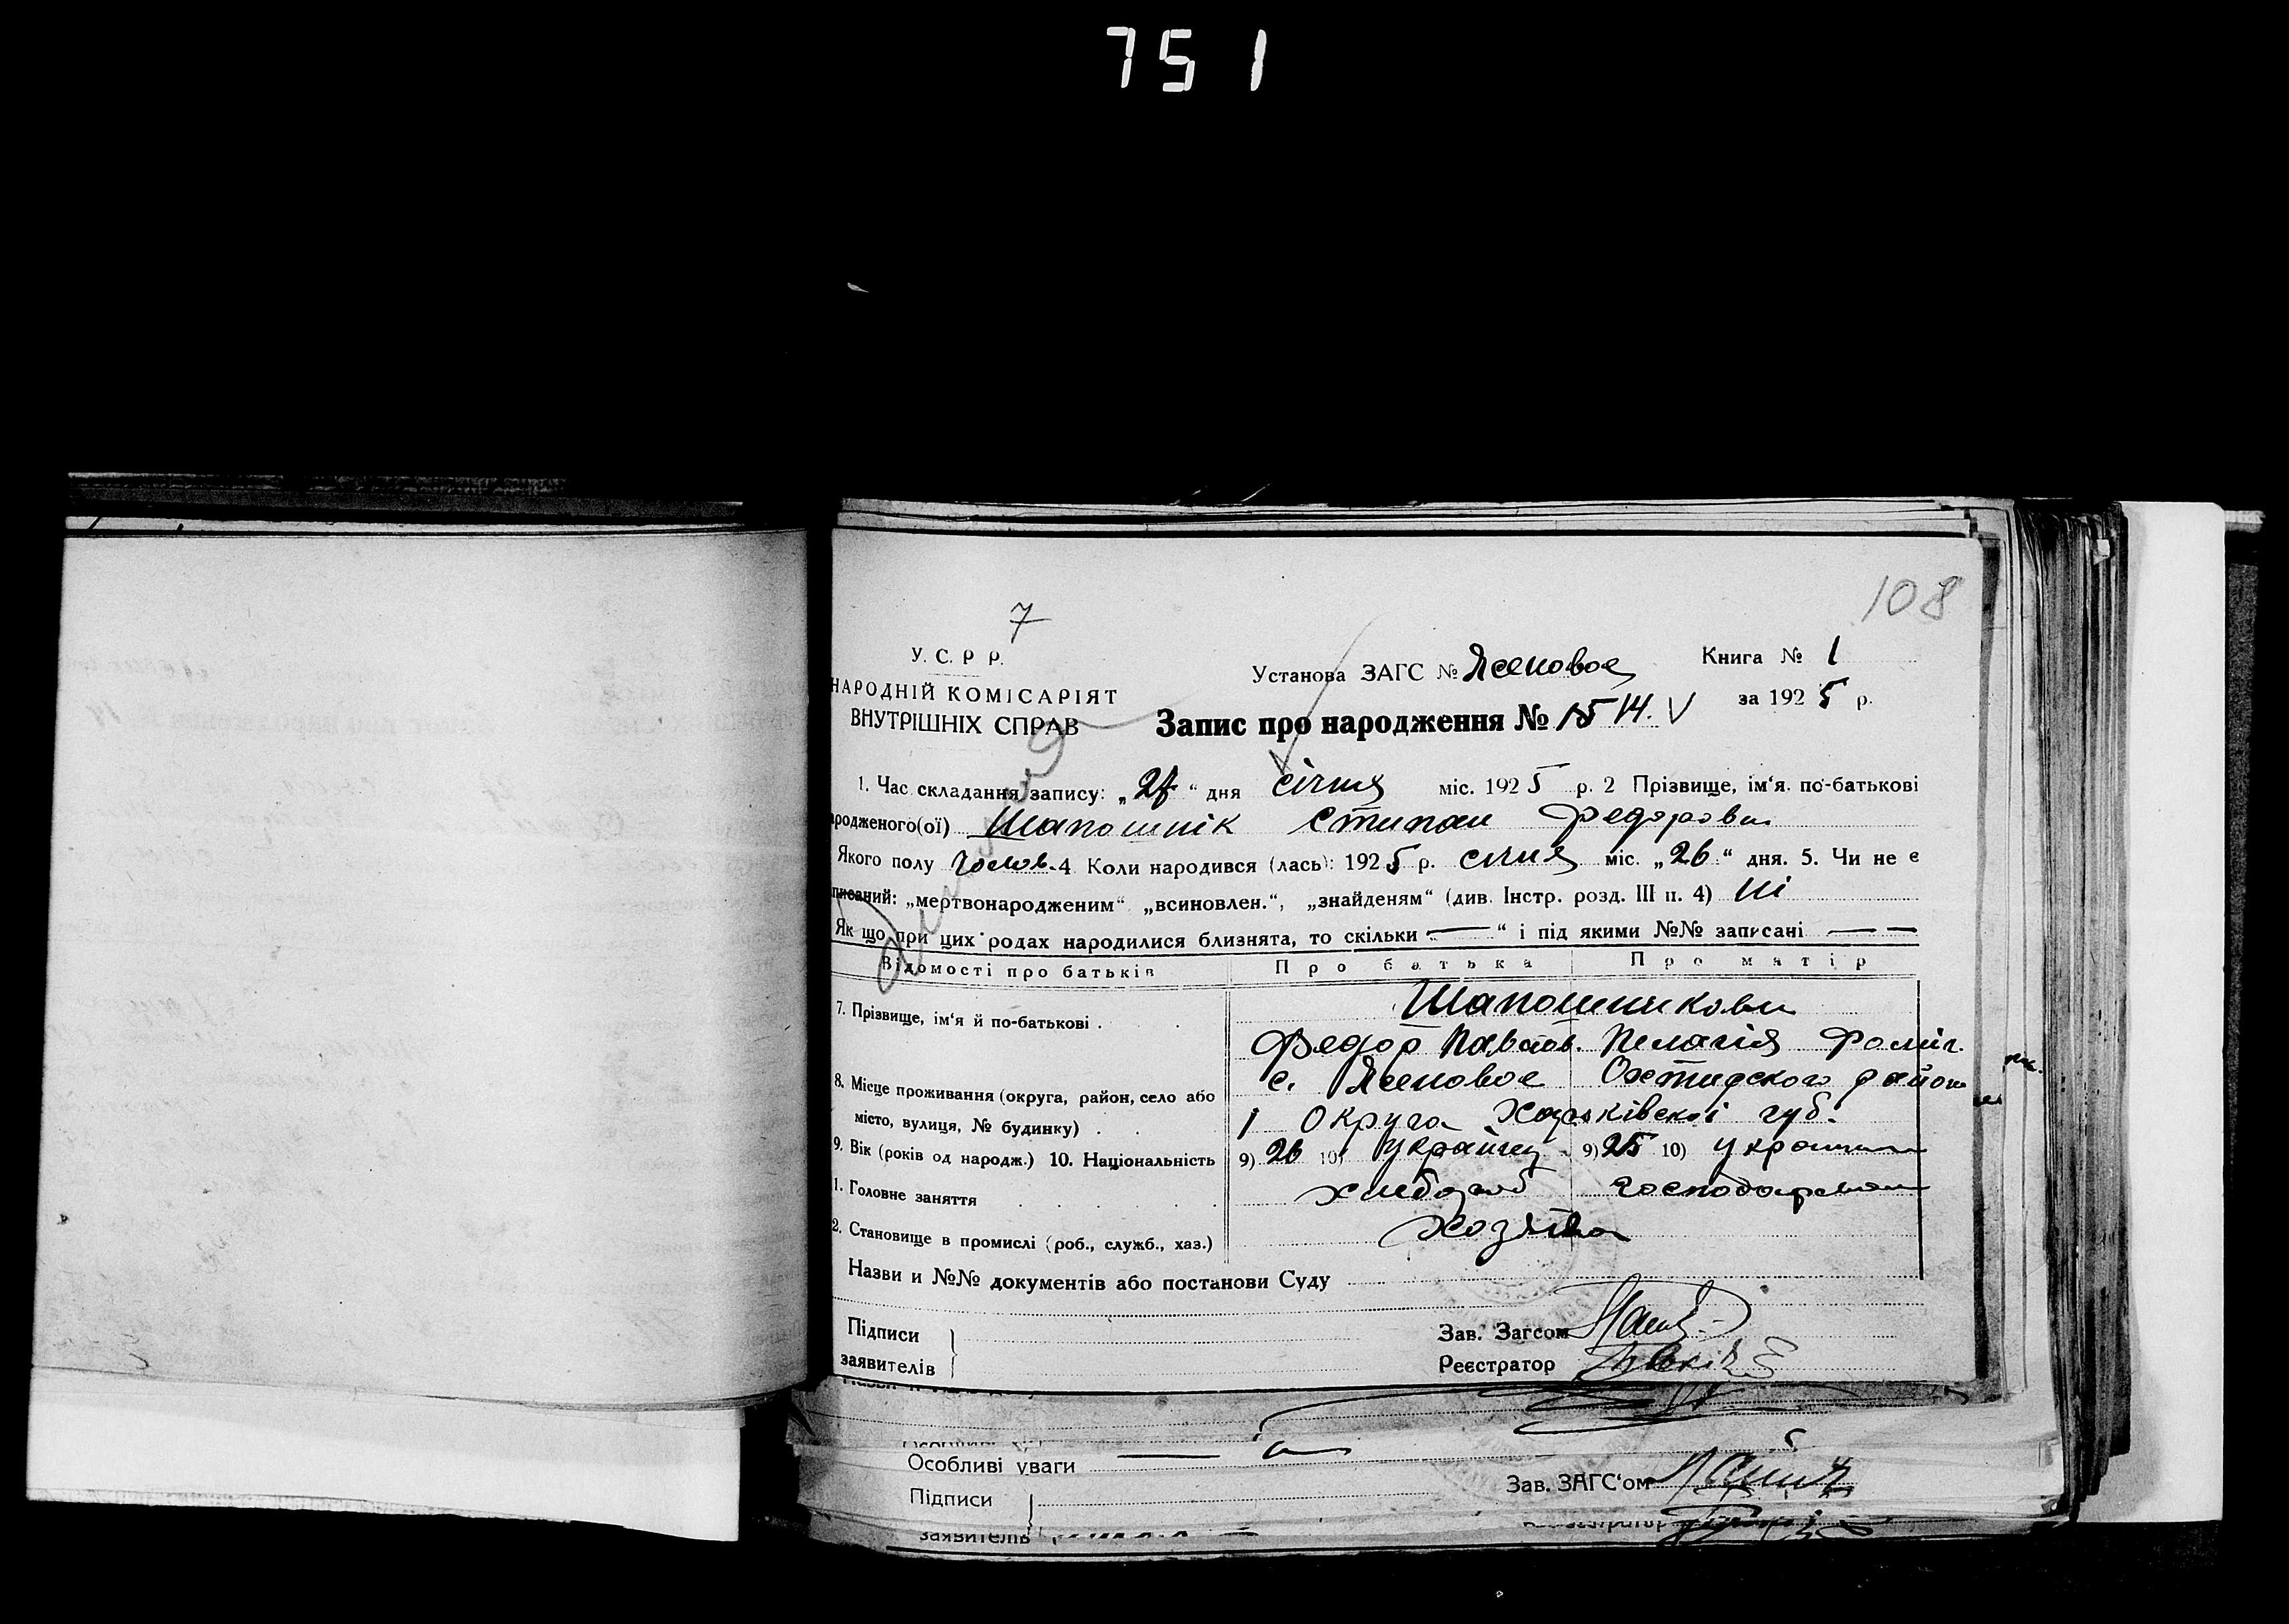 751
108
7
У. С. Р Р.
Установа ЗАГС № Ясеновое
Книга № 1
НАРОДНІЙ КОМІСАРІЯТ
за 1925 р.
ВНУТРІШНІХ СПРАВ
Запис про народження № 15 14. V
1. Час складання запису: „27“ дня січня міс. 1925 р. 2 Прізвище, ім‘я. по-батькові
родженого(ої) Шапошнік Стипан Федорови
Якого полу Чолов. 4 Коли народився (лась): 1925 р. січня міс. „26“ дня. 5. Чи не є
писаний: „мертвонародженим“ „всиновлен.“, „знайденям“ (див. Інстр. розд. III п. 4) Ні
Як що при цих родах народилися близнята, то скільки „—“ і під якими №№ записані — —
Відомості про батьків Про батька Про матір
7. Прізвище, ім‘я й по-батькові . . Шапошникови
Федор Павлов. Пелагія Фоміг.
8. Місце проживання (округа, район, село або с. Ясеновое Охтирского район
місто, вулиця, № будинку) . . 1 Округа Харьківскоі губ.
9. Вік (років од народж.) 10. Національність 9) 26 10) україн 9) 25 10) україн
1. Головне заняття хлибороб господарством
2. Становище в промислі (роб., служб., хаз.) Хозяіва
Назви и №№ документів або постанови Суду
Підписи
Зав. Загсом
заявителів
Реєстратор
Особливі уваги
Підписи
Зав. ЗАГС‘ом
заявителів